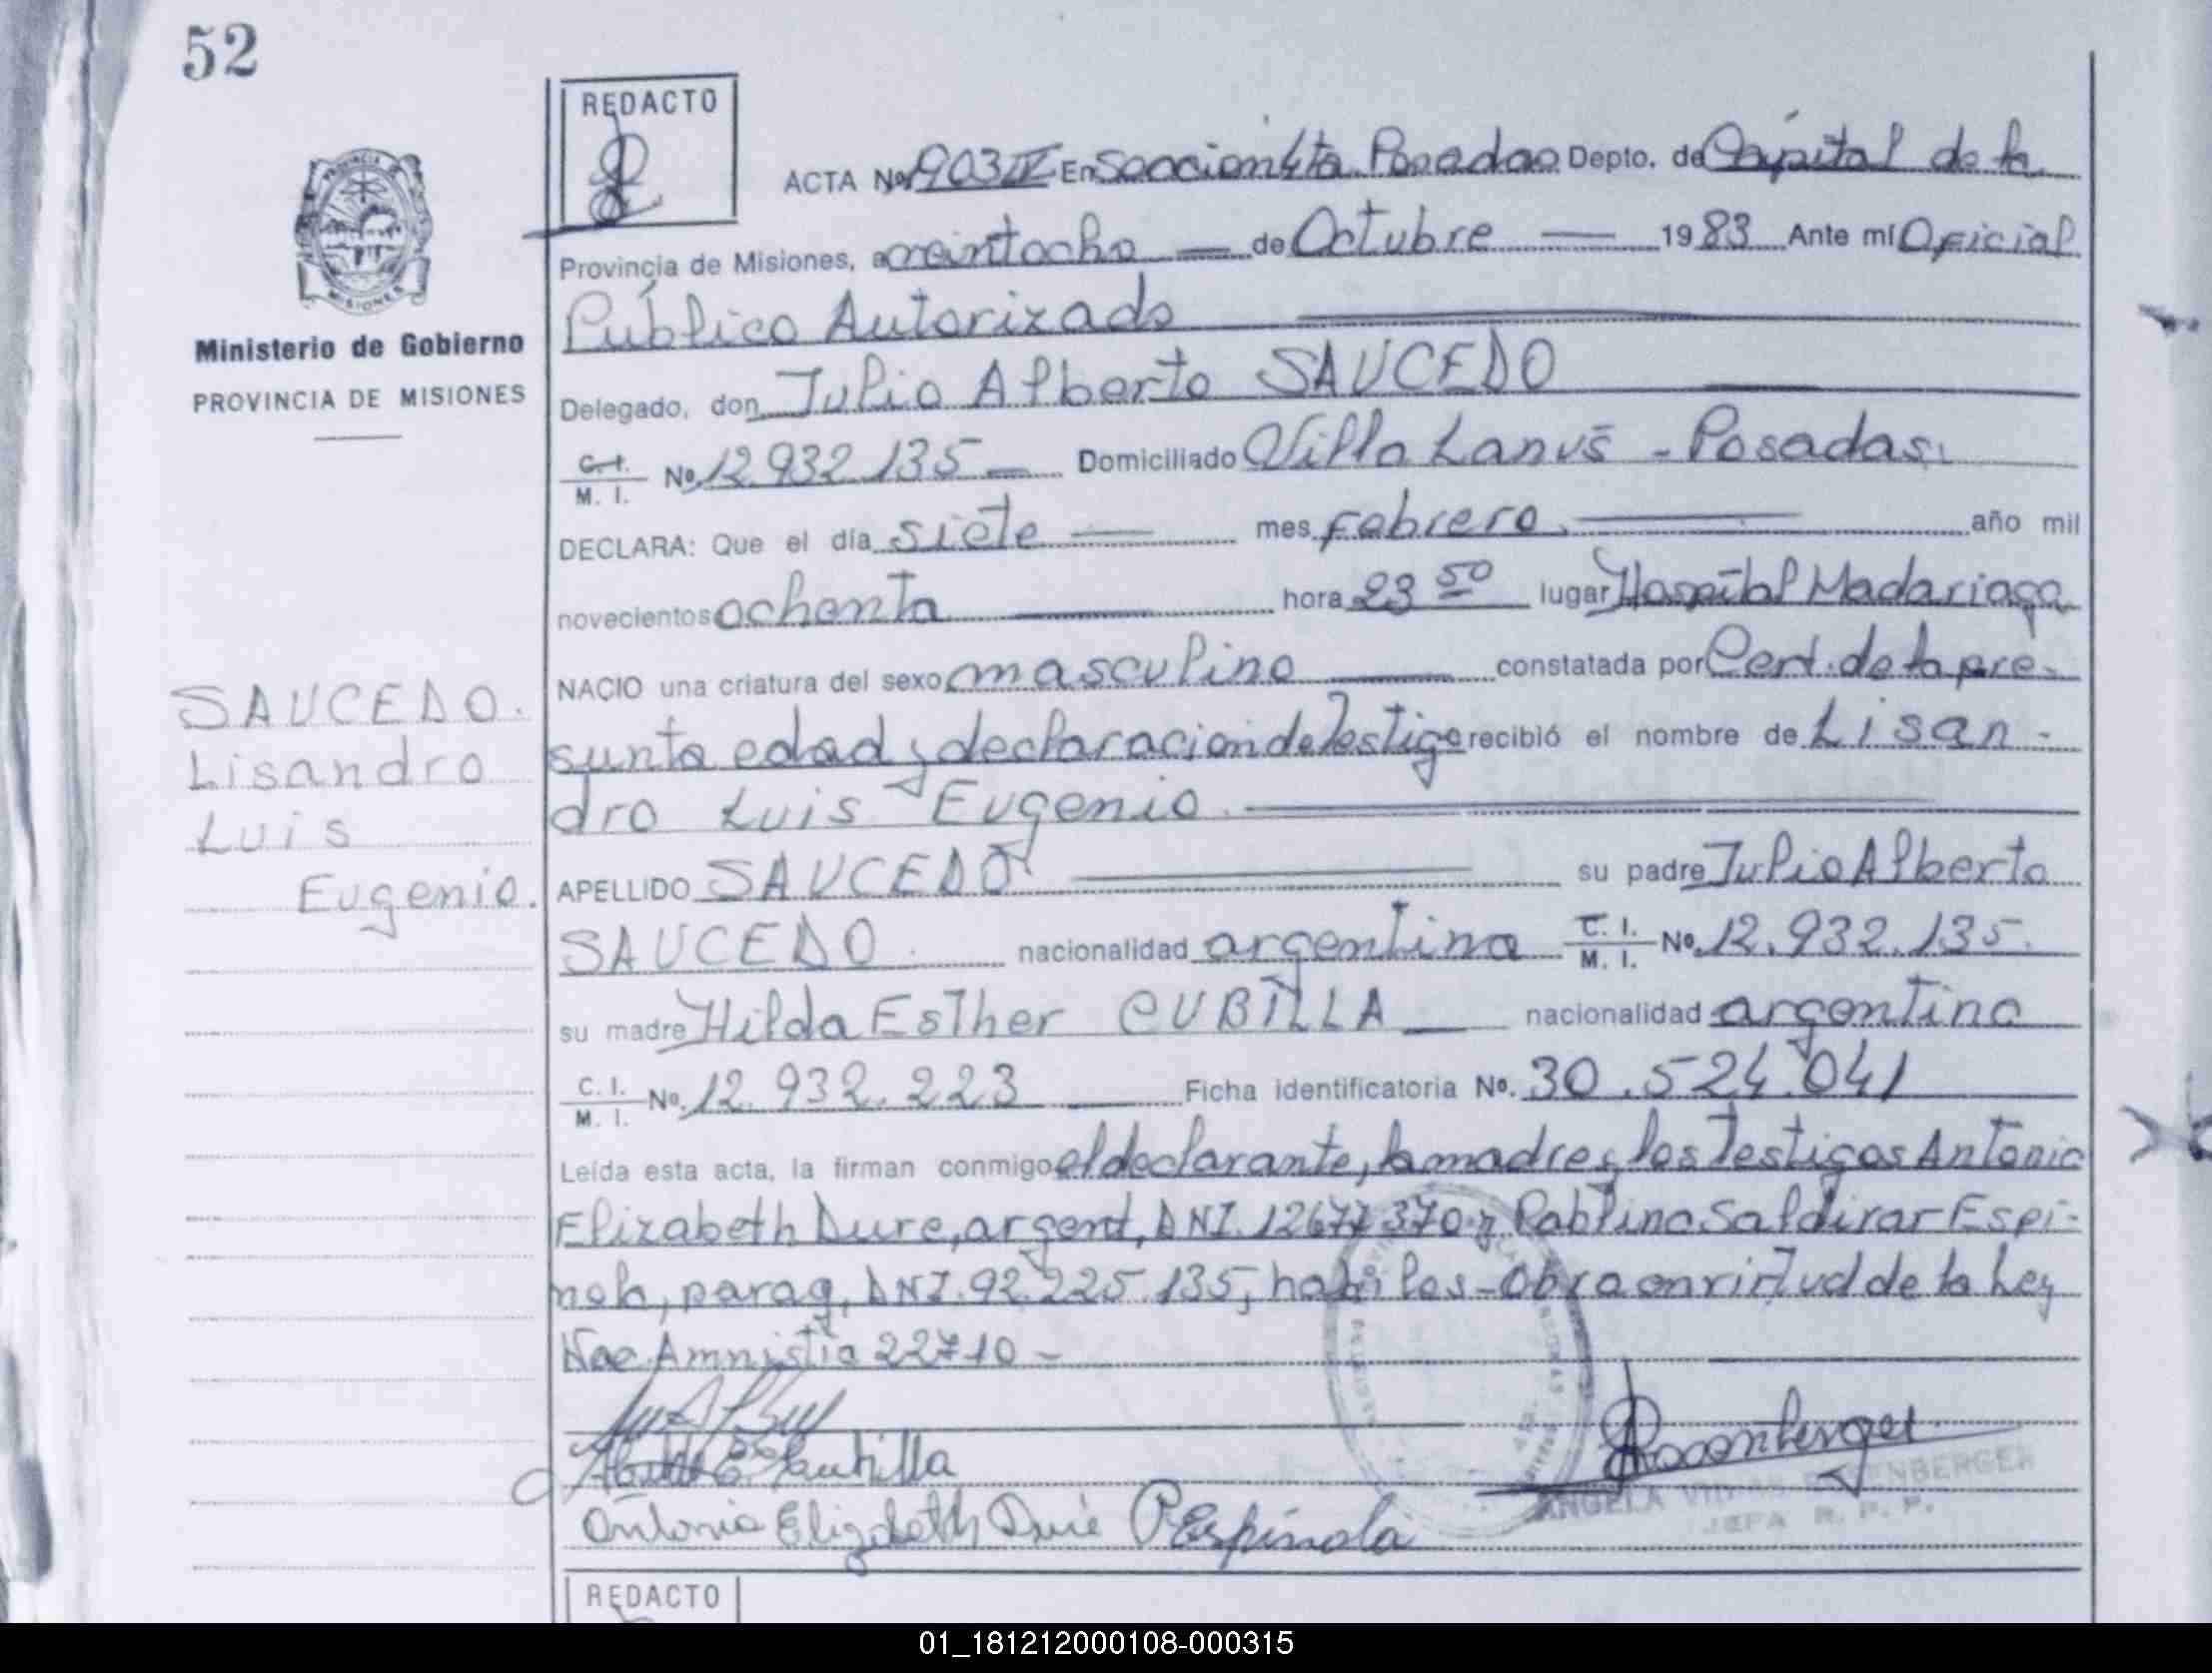 52
REDACTO
ACTA Nº 903 IV En Seccion 4ta. Posadas Depto. de Capital de la
Provincia de Misiones, a veintocho — de Octubre — 1983 Ante mí Oficial
Público Autorizado
Ministerio de Gobierno
PROVINCIA DE MISIONES
Delegado, don Julio Alberto SAUCEDO
C. I. / M. I. Nº 12.932.135 — Domiciliado Villa Lanús - Posadas.
DECLARA: Que el día siete — mes febrero. — año mil
novecientos ochenta — hora 23 50 lugar Hospital Madariaga
NACIO una criatura del sexo masculino — constatada por Cert. de la pre-
sunta edad y declaracion de Testigo recibió el nombre de Lisan-
dro Luis Eugenio.
SAUCEDO.
Lisandro
Luis
Eugenio.
APELLIDO SAUCEDO — su padre Julio Alberto
SAUCEDO nacionalidad argentina C. I. / M. I. Nº 12.932.135.
su madre Hilda Esther CUBILLA — nacionalidad argentina
C. I. / M. I. Nº 12.932.223 — Ficha identificatoria Nº. 30.524.041
Leída esta acta, la firman conmigo el declarante, la madre y los Testigos Antonia
Elizabeth Dure, argent, DNI. 12677370 y Pablina Saldivar Espi-
nola, parag, DNI. 92.225.135, habiles - Obra en virtud de la Ley
Nac. Amnistia 22710 -
Cubilla
Antonia Elizabeth Duré P Espínola
Rosenberger
ANGELA ROSENBERGER
JEFA R. P. P.
REDACTO
01_181212000108-000315